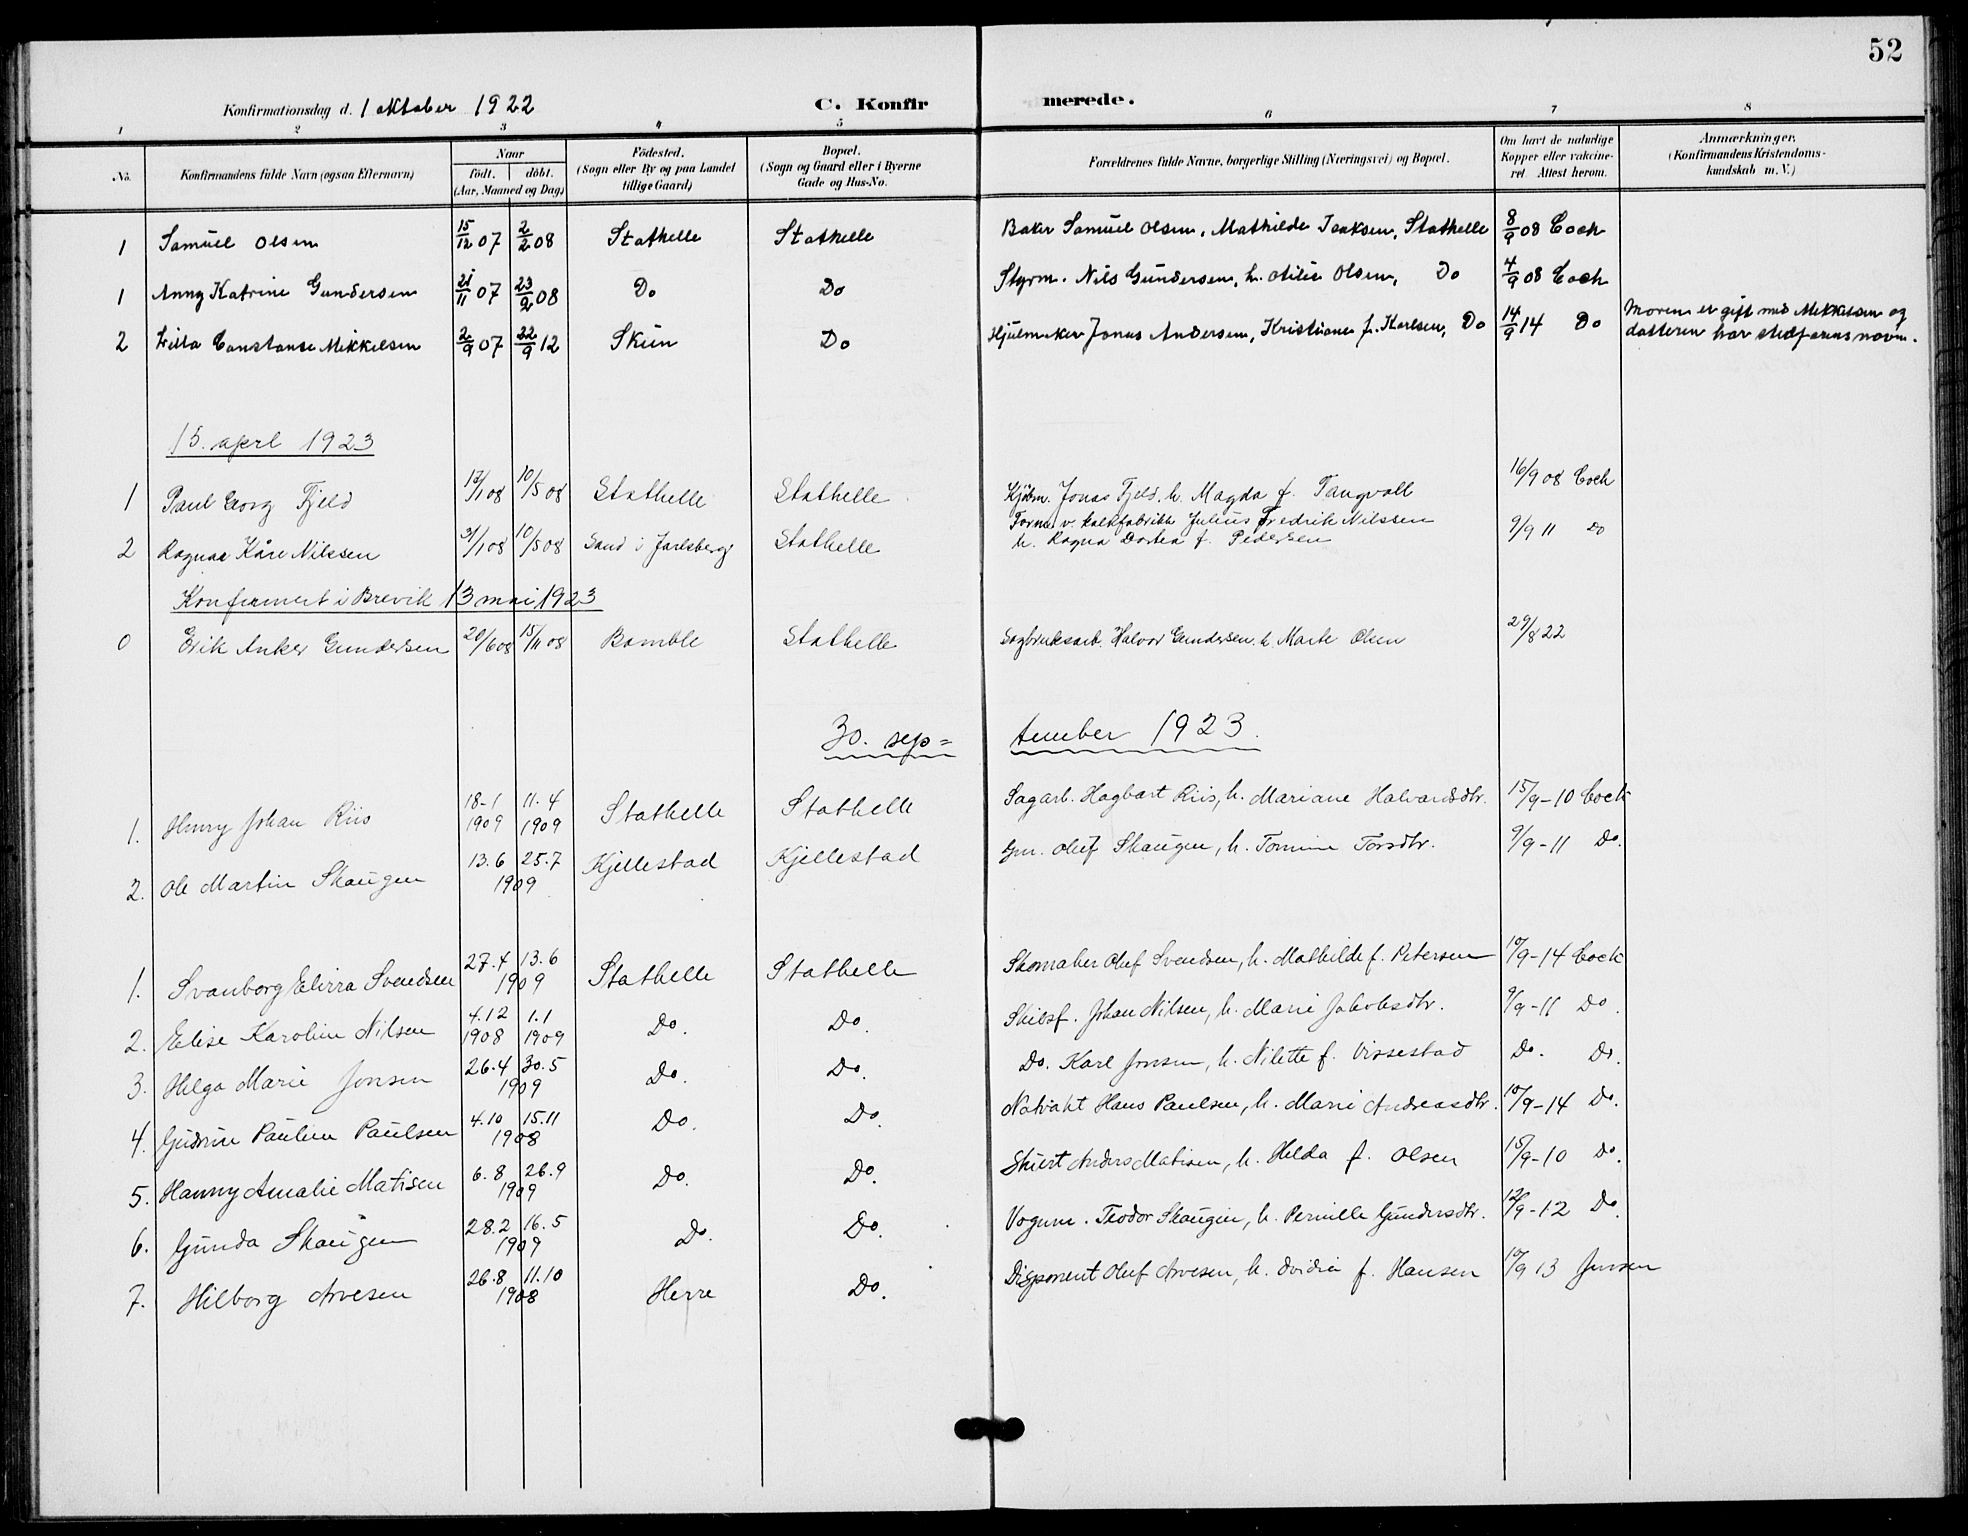 52
Konfirmationsdag d. 1 oktober 1922 C. Konfirmerede.
1 2 3 4 5 6 7 8
No. Konfirmandens fulde Navn (ogsaa Efternavn) Naar født. døbt. (Aar, Maaned og Dag) Födested. (Sogn eller By og paa Landet tillige Gaard) Bopæl. (Sogn og Gaard eller i Byerne Gade og Hus-No. Forældrenes fulde Navne, borgerlige Stilling (Næringsvei) og Bopæl. Om havt de naturlige Kopper eller vakcineret. Attest herom. Anmærkninger. (Konfirmandens Kristendomskundskab m. V.)
1 Samuel Olsen 15/12 07 2/2 08 Stathelle Stathelle Baker Samuel Olsen, Mathilde Isaksen, Stathelle 8/9 08 Coch
1 Anny Katrine Gundersen 21/11 07 23/2 08 Do Do Styrm. Nils Gundersen, h. Olsen, Do 4/9 08 Coch
2 Constanse Mikkelsen 2/9 07 22/9 12 Skien Do Hjulmaker Jonas Andersen, Kristiane f. Karlsen, Do 14/9 14 Do Moren er gift med Mikkelsen og
datteren har stedfarens navn.
15. april 1923
1 Paul Georg Fjeld 17/1 08 10/5 08 Stathelle Stathelle Kjøbm. Jonas Fjeld, h. Magda f. Tangvall 16/9 08 Coch
2 Ragnar Kåre Nilssen 31/1 08 10/5 08 Sand i Jarlsberg Stathelle Form. v. kalkfabrikk Julius Fredrik Nilssen
h. Ragna Dortea f. Pedersen 9/9 11 Do
Konfirmert i Brevik 13 mai 1923
0 Erik Anker Gundersen 20/6 08 15/11 08 Bamble Stathelle Sagbruksarb. Halvor Gundersen h. Olsen 29/8 22
30. september 1923.
1. Henry Johan Riis 18-1 1909 11.4 1909 Stathelle Stathelle Sagarb. Hagbart Riis, h. Mariane Halvardsdtr. 15/9-10 Coch
2. Ole Martin Skaugen 13.6 25.7 1909 Kjellestad Kjellestad Gm. Oluf Skaugen, h. Tomine Torsdtr. 9/9-11 Do.
1. Svanborg Elvira Svendsen 27.4 13.6 1909 Stathelle Stathelle Skomaker Oluf Svendsen, h. Mathilde f. Petersen 10/9-14 Coch
2. Elise Karoline Nilsen 4.12 1908 1.1 1909 Do. Do. Skibsf. Johan Nilsen, h. Marie Jakobsdtr. 9/9-11 Do.
3. Helga Marie Jonsen 26.4 30.5 1909 Do. Do. Do. Karl Jonsen, h. Nilette f. Vissestad Do. Do.
4. Gudrun Pauline Paulsen 4.10 15.11 1908 Do. Do. Natvakt Hans Paulsen, h. Marie Andreasdtr. 10/9-14 Do.
5. Hanny Amalie Matisen 6.8 26.9 1909 Do. Do. Anders Matisen, h. Helda f. Olsen 15/9-10 Do.
6. Gunda Skaugen 28.2 16.5 1909 Do. Do. Vognm. Teodor Skaugen, h. Pernille Gundersdtr. 12/9-12 Do.
7. Hilborg Arvesen 26.8 11.10 1908 Herre Do. Disponent Oluf Arvesen, h. f. Hansen 10/9 13 Jensen